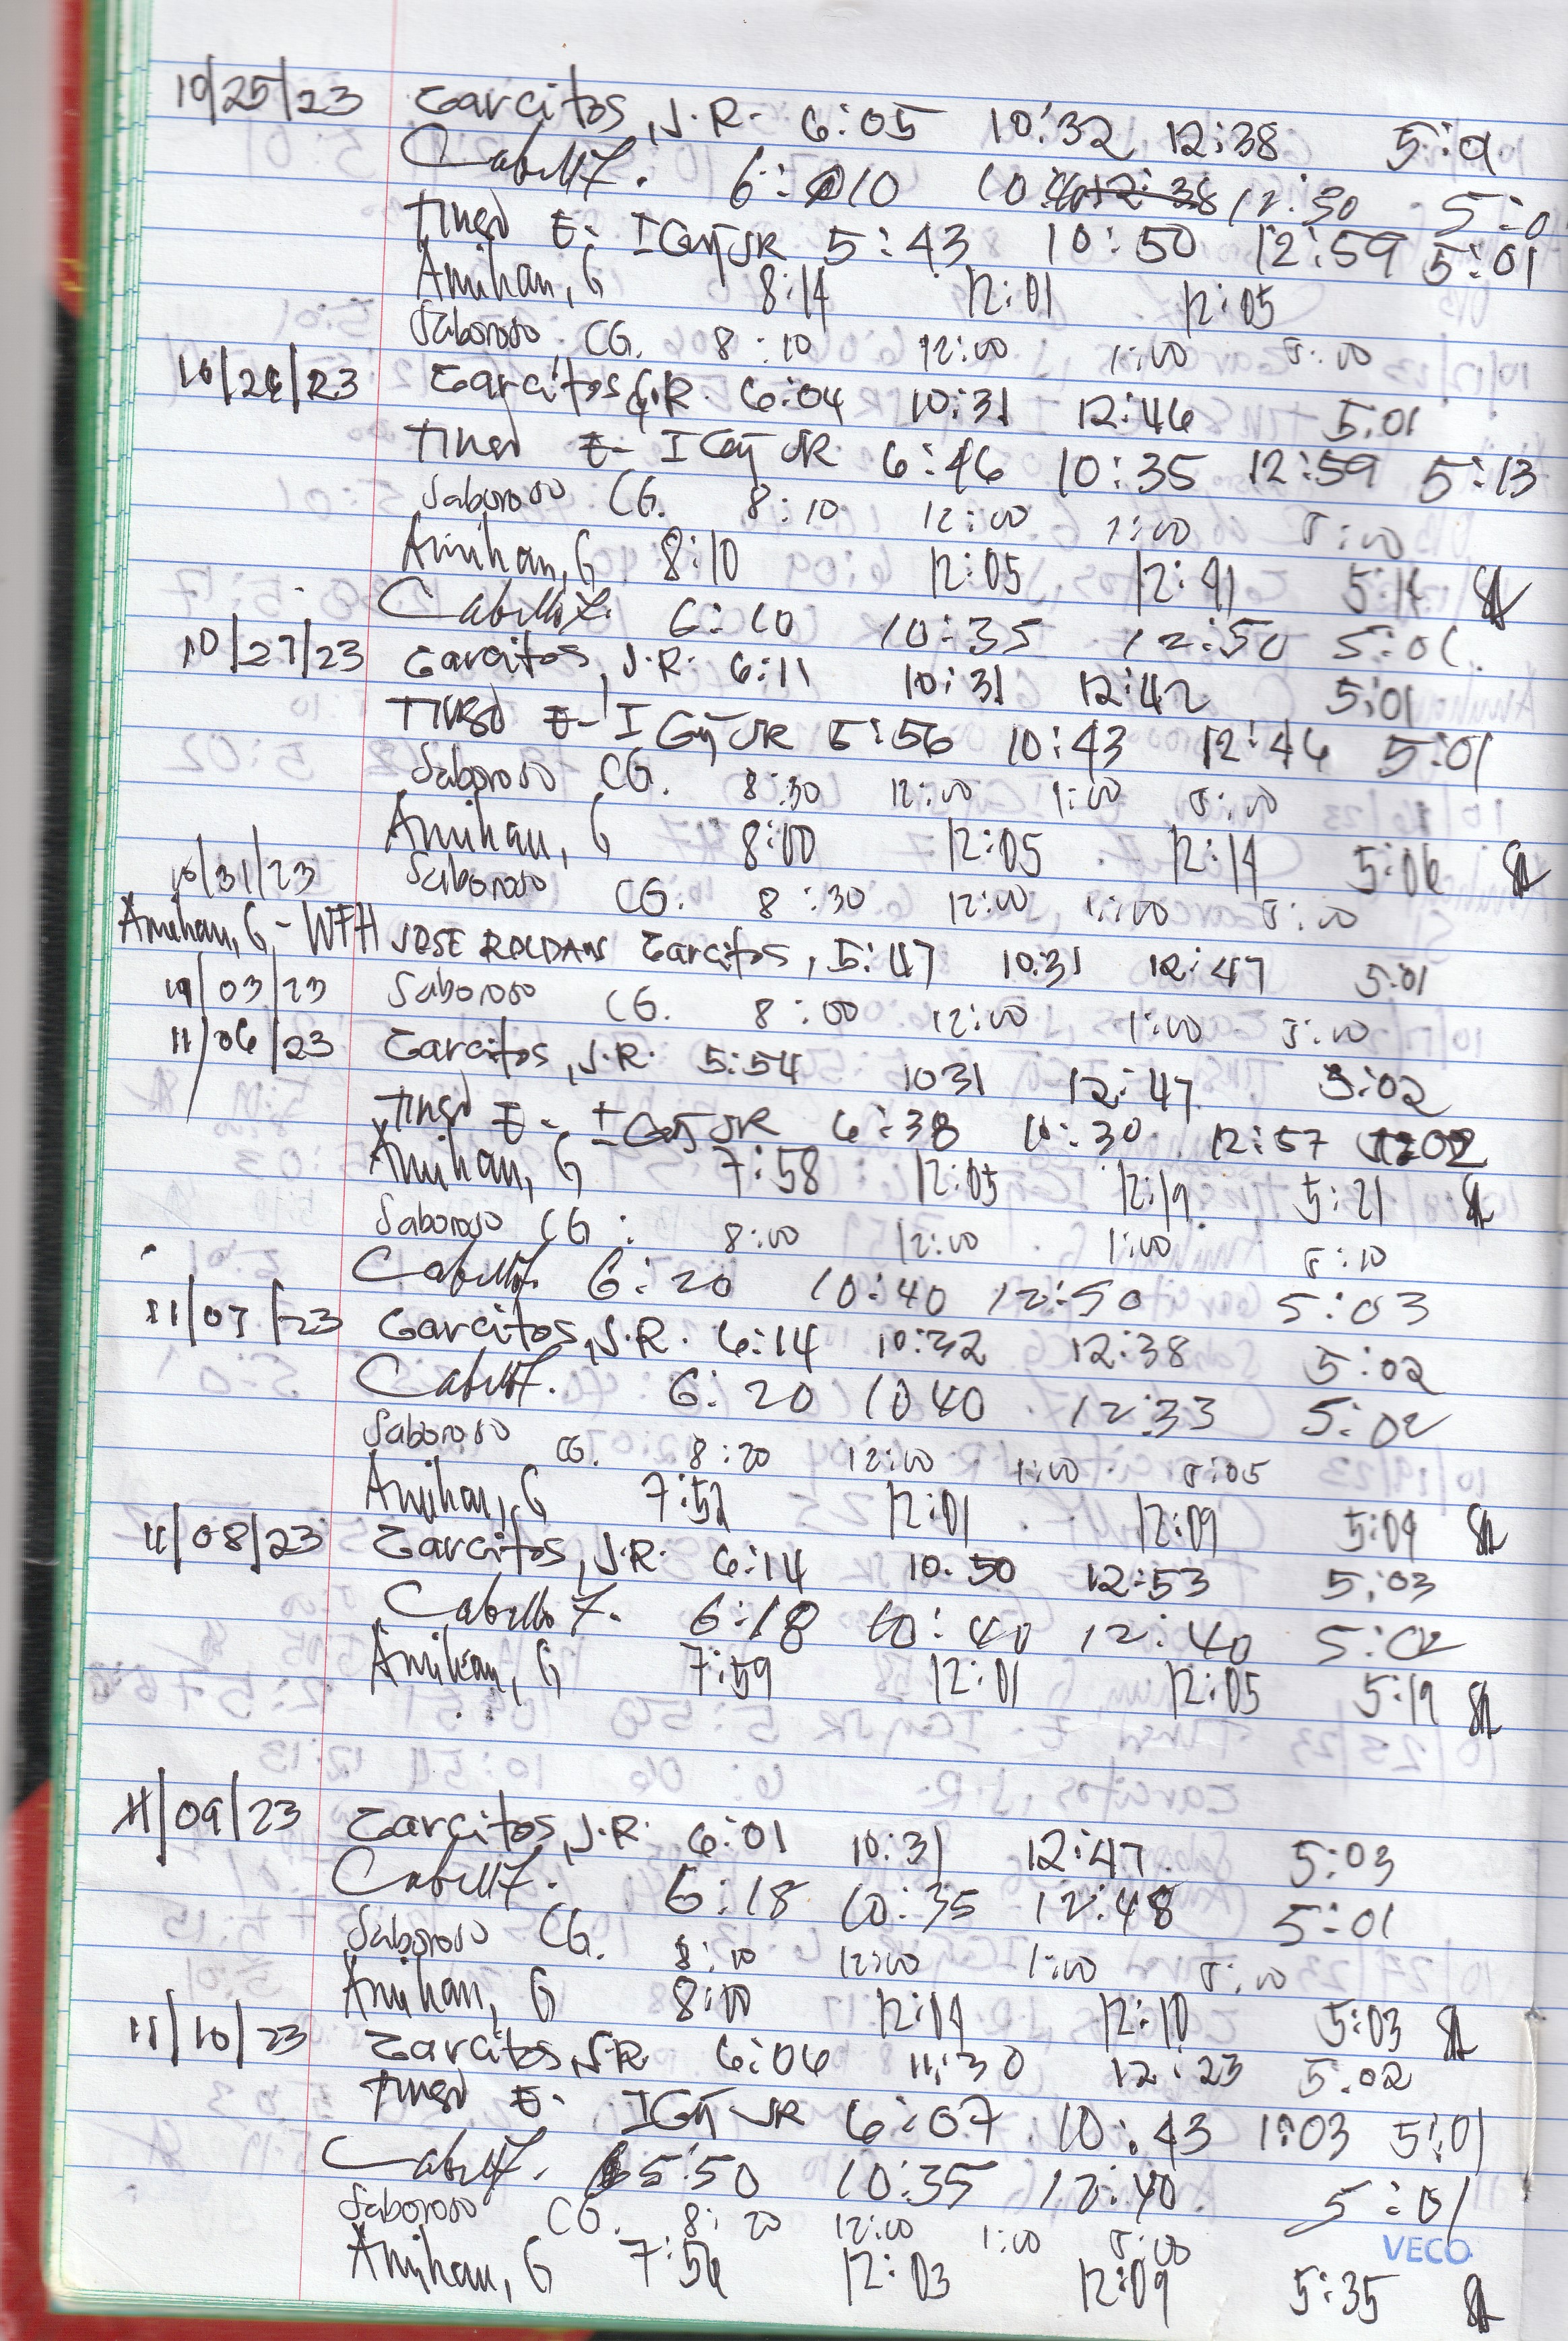 10/25/23 Garcitos, J.R. 6:05 10:32 12:38 5:01
Cabello F. 6:10 10:40 12:38 12:50 5:0
E. IGOY JR 5:43 10:50 12:59 5:01
Amihan, G 8:14 12:01 12:05
Saboroso CG. 8:10 12:00 1:00 5:00
10/26/23 Garcitos, J.R. 6:04 10:31 12:46 5:01
E- IGOY JR 6:46 10:35 12:59 5:13
Saboroso CG. 8:10 12:00 1:00 5:00
Amihan, G 8:10 12:05 12:41 5:14
Cabello F. 6:10 10:35 12:50 5:01
10/27/23 Garcitos, J.R. 6:11 10:31 12:42 5:01
E- IGOY JR 5:56 10:43 12:46 5:01
Saboroso CG. 8:30 12:00 1:00 5:00
Amihan, G 8:00 12:05 12:14 5:06
10/31/23 Saboroso CG. 8:30 12:00 1:00 5:00
Amihan, G - WFH JOSE ROLDAN Garcitos, 5:47 10:31 12:47 5:01
11/03/23 Saboroso CG. 8:00 12:00 1:00 5:00
11/06/23 Garcitos, J.R. 5:54 1031 12:47 5:02
E- IGOY JR 6:38 10:30 12:57 5:02
Amihan, G 7:58 12:05 12:19 5:21
Saboroso CG: 8:00 12:00 1:00 5:10
Cabello F. 6:20 10:40 12:50 5:03
11/07/23 Garcitos, J.R. 6:14 10:32 12:38 5:02
Cabello F. 6:20 1040 12:33 5:02
Saboroso CG. 8:20 12:00 1:00 5:05
Amihan, G 7:52 12:01 12:09 5:09
11/08/23 Garcitos, J.R. 6:14 10.50 12:53 5:03
Cabello F. 6:18 10:40 12:40 5:02
Amihan, G 7:59 12:01 12:05 5:19
11/09/23 Garcitos, J.R. 6:01 10:31 12:47 5:03
Cabello F. 6:18 10:35 12:48 5:01
Saboroso CG. 8:10 12:00 1:00 5:00
Amihan, G 8:00 12:04 12:10 5:03
11/10/23 Garcitos, J.R 6:06 11:30 12:23 5.02
E- IGOY JR 6:07 10:43 1:03 5:01
Cabello F. 5:50 10:35 12:40 5:01
Saboroso CG. 8:20 12:00 1:00 5:00
VECO
Amihan, G 7:56 12:03 12:09 5:35